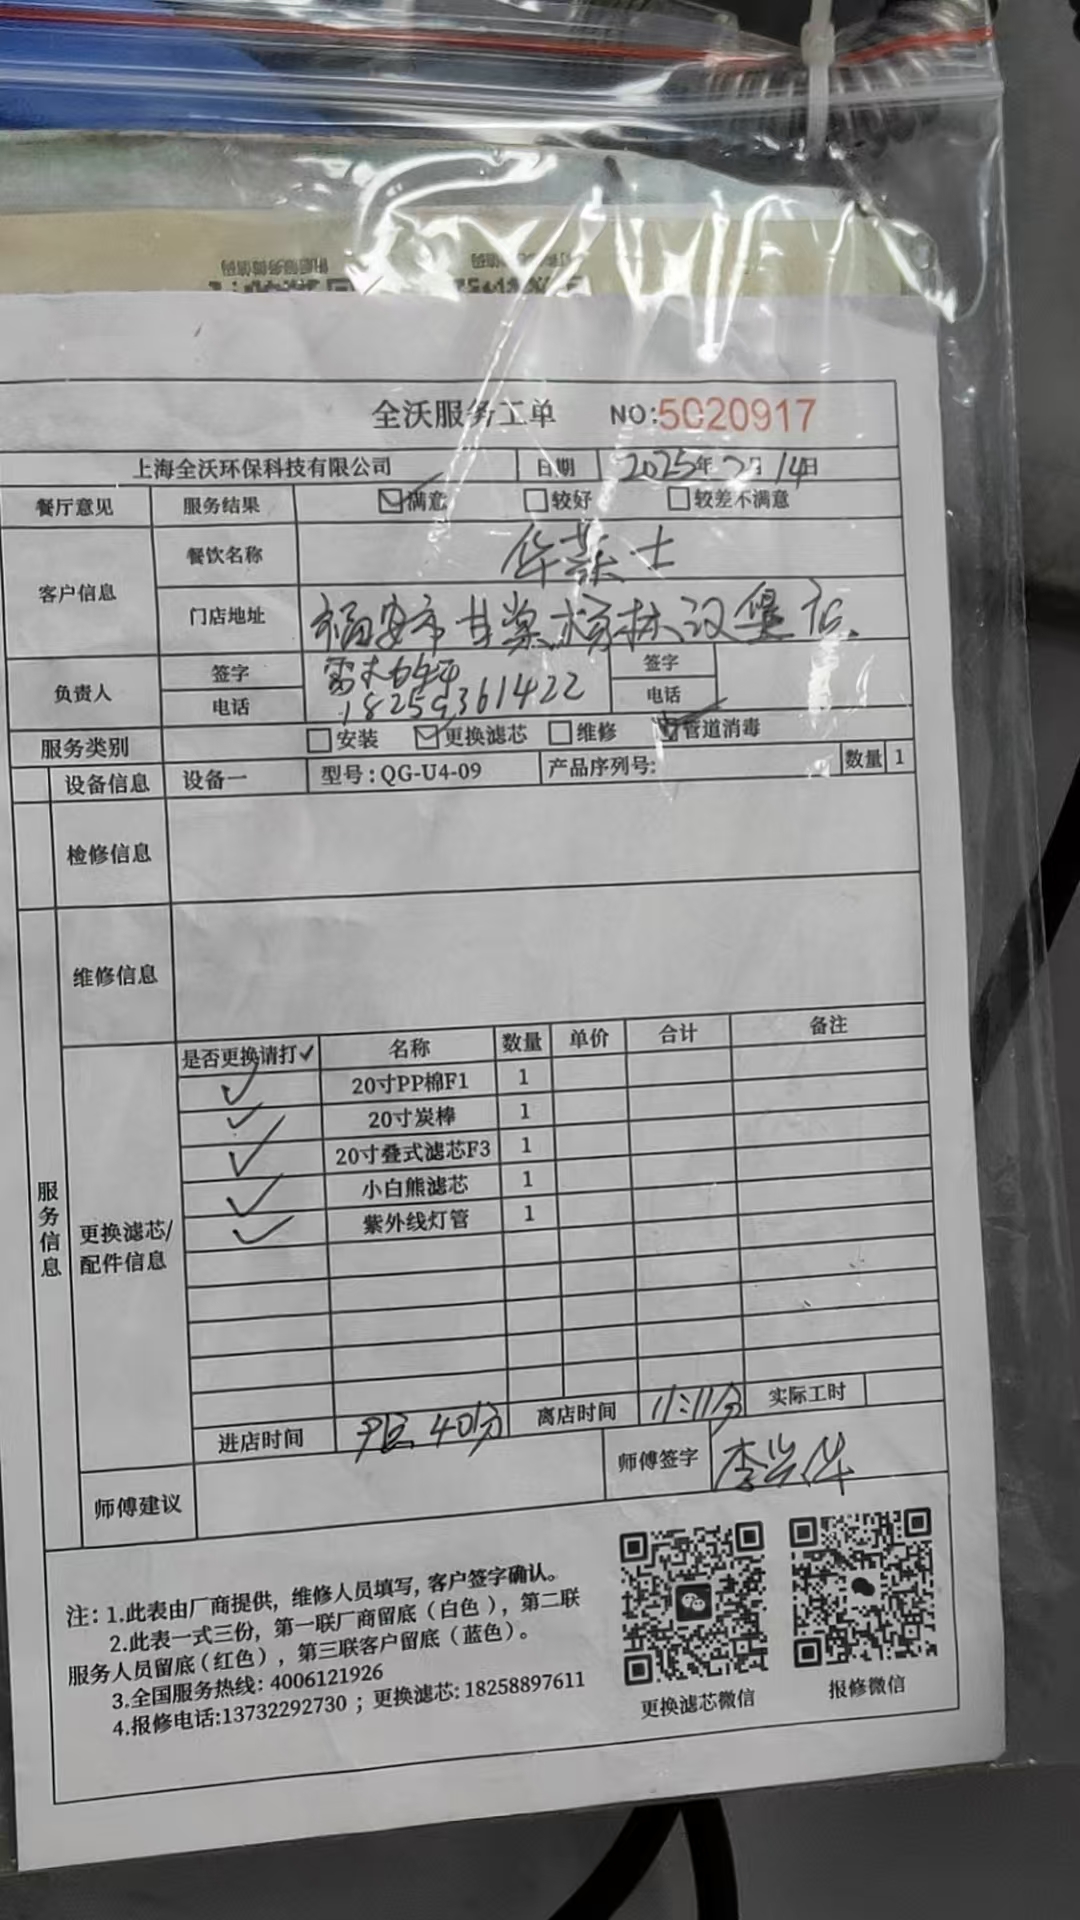 全沃服务工单 NO:5020917
上海全沃环保科技有限公司 日期 2025年 月14日
餐厅意见 服务结果 ☑满意 □较好 □较差不满意
客户信息 餐饮名称 华莱士
门店地址 福安市甘棠 林汉堡店
负责人 签字 签字
电话 18259361422 电话
服务类别 □安装 ☑更换滤芯 □维修 ☑管道消毒
设备信息 设备一 型号:QG-U4-09 产品序列号: 数量 1
检修信息
维修信息
服务信息
更换滤芯/配件信息
是否更换请打✓ 名称 数量 单价 合计 备注
✓ 20寸PP棉F1 1
✓ 20寸炭棒 1
✓ 20寸叠式滤芯F3 1
✓ 小白熊滤芯 1
✓ 紫外线灯管 1
进店时间 40分 离店时间 11:11分 实际工时
师傅建议 师傅签字 李兴华
注：1.此表由厂商提供，维修人员填写，客户签字确认。
2.此表一式三份，第一联厂商留底（白色），第二联
服务人员留底（红色），第三联客户留底（蓝色）。
3.全国服务热线：4006121926
4.报修电话:13732292730；更换滤芯：18258897611
更换滤芯微信 报修微信